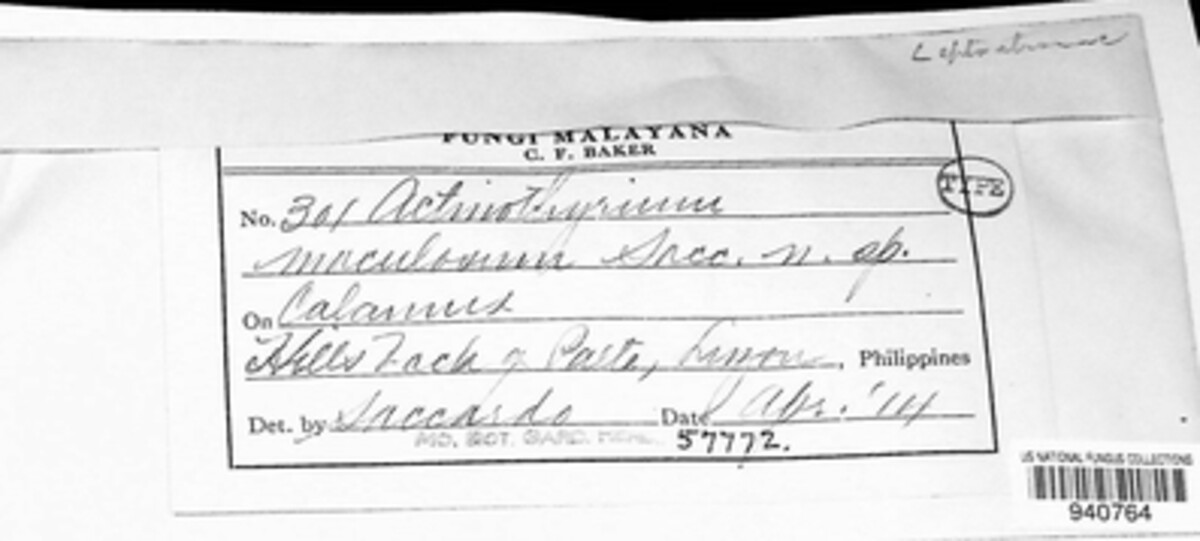 FUNGI MALAYANA
C. F. BAKER
TYPE
No. 301 Actinothyrium
maculosum Sacc. n. sp.
On Calamus
Hills back of Paete, , Philippines
Det. by Saccardo Date Apr. '14
MO. BOT. GARD. HERB. 57772.
US NATIONAL FUNGUS COLLECTIONS
940764